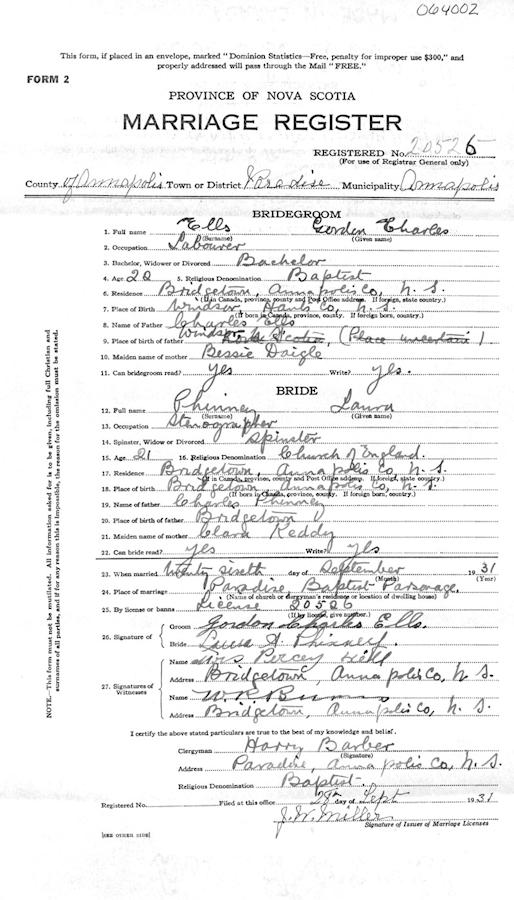 064002
This form, if placed in an envelope, marked "Dominion Statistics—Free, penalty for improper use $300," and
properly addressed will pass through the Mail "FREE."
FORM 2
PROVINCE OF NOVA SCOTIA
MARRIAGE REGISTER
REGISTERED No. 20526
(For use of Registrar General only)
County of Annapolis Town or District Paradise Municipality Annapolis
BRIDEGROOM
1. Full name Ells Gordon Charles
(Surname) (Given name)
2. Occupation Labourer
3. Bachelor, Widower or Divorced Bachelor
4. Age 20 5. Religious Denomination Baptist
6. Residence Bridgetown, Annapolis Co, N. S.
(If in Canada, province, county and Post Office address. If foreign, state country.)
7. Place of Birth Windsor, Hants Co, N. S.
(If born in Canada, province, county. If foreign born, country.)
8. Name of Father Charles Ells
9. Place of birth of father Windsor Nova Scotia, (Place uncertain).
10. Maiden name of mother Bessie Daigle
11. Can bridegroom read? yes Write? yes.
BRIDE
12. Full name Phinney Laura
(Surname) (Given name)
13. Occupation Stenographer
14. Spinster, Widow or Divorced Spinster
15. Age 21 16. Religious Denomination Church of England.
17. Residence Bridgetown, Annapolis Co, N. S.
(If in Canada, province, county and Post Office address. If foreign, state country.)
18. Place of birth Bridgetown Annapolis Co, N. S.
(If born in Canada, province, county. If foreign born, country.)
19. Name of father Charles Phinney
20. Place of birth of father Bridgetown
21. Maiden name of mother Clara Keddy
22. Can bride read? yes Write? yes
23. When married twenty sixeth day of September 1931
(Month) (Year)
24. Place of marriage Paradise Baptist Parsonage
(Name of church or clergyman's residence or location of dwelling house)
25. By license or banns License 20526
(If by license, give number.)
26. Signature of
Groom Gordon Charles Ells.
Bride A. Phinney.
27. Signatures of Witnesses
Name Mrs Percy
Address Bridgetown, Annapolis Co, N. S.
Name W. R. Burns
Address Bridgetown, Annapolis Co, N. S.
I certify the above stated particulars are true to the best of my knowledge and belief.
Clergyman Harry Barber
(Signature)
Address Paradise, Annapolis Co, N. S.
Religious Denomination Baptist.
Registered No. Filed at this office 28th day of Sept 1931
J. W. Miller
Signature of Issuer of Marriage Licenses
[SEE OTHER SIDE]
NOTE.—This form must not be mutilated. All information asked for is to be given, including full Christian and
surnames of all parties, and if for any reason this is impossible, the reason for the omission must be stated.